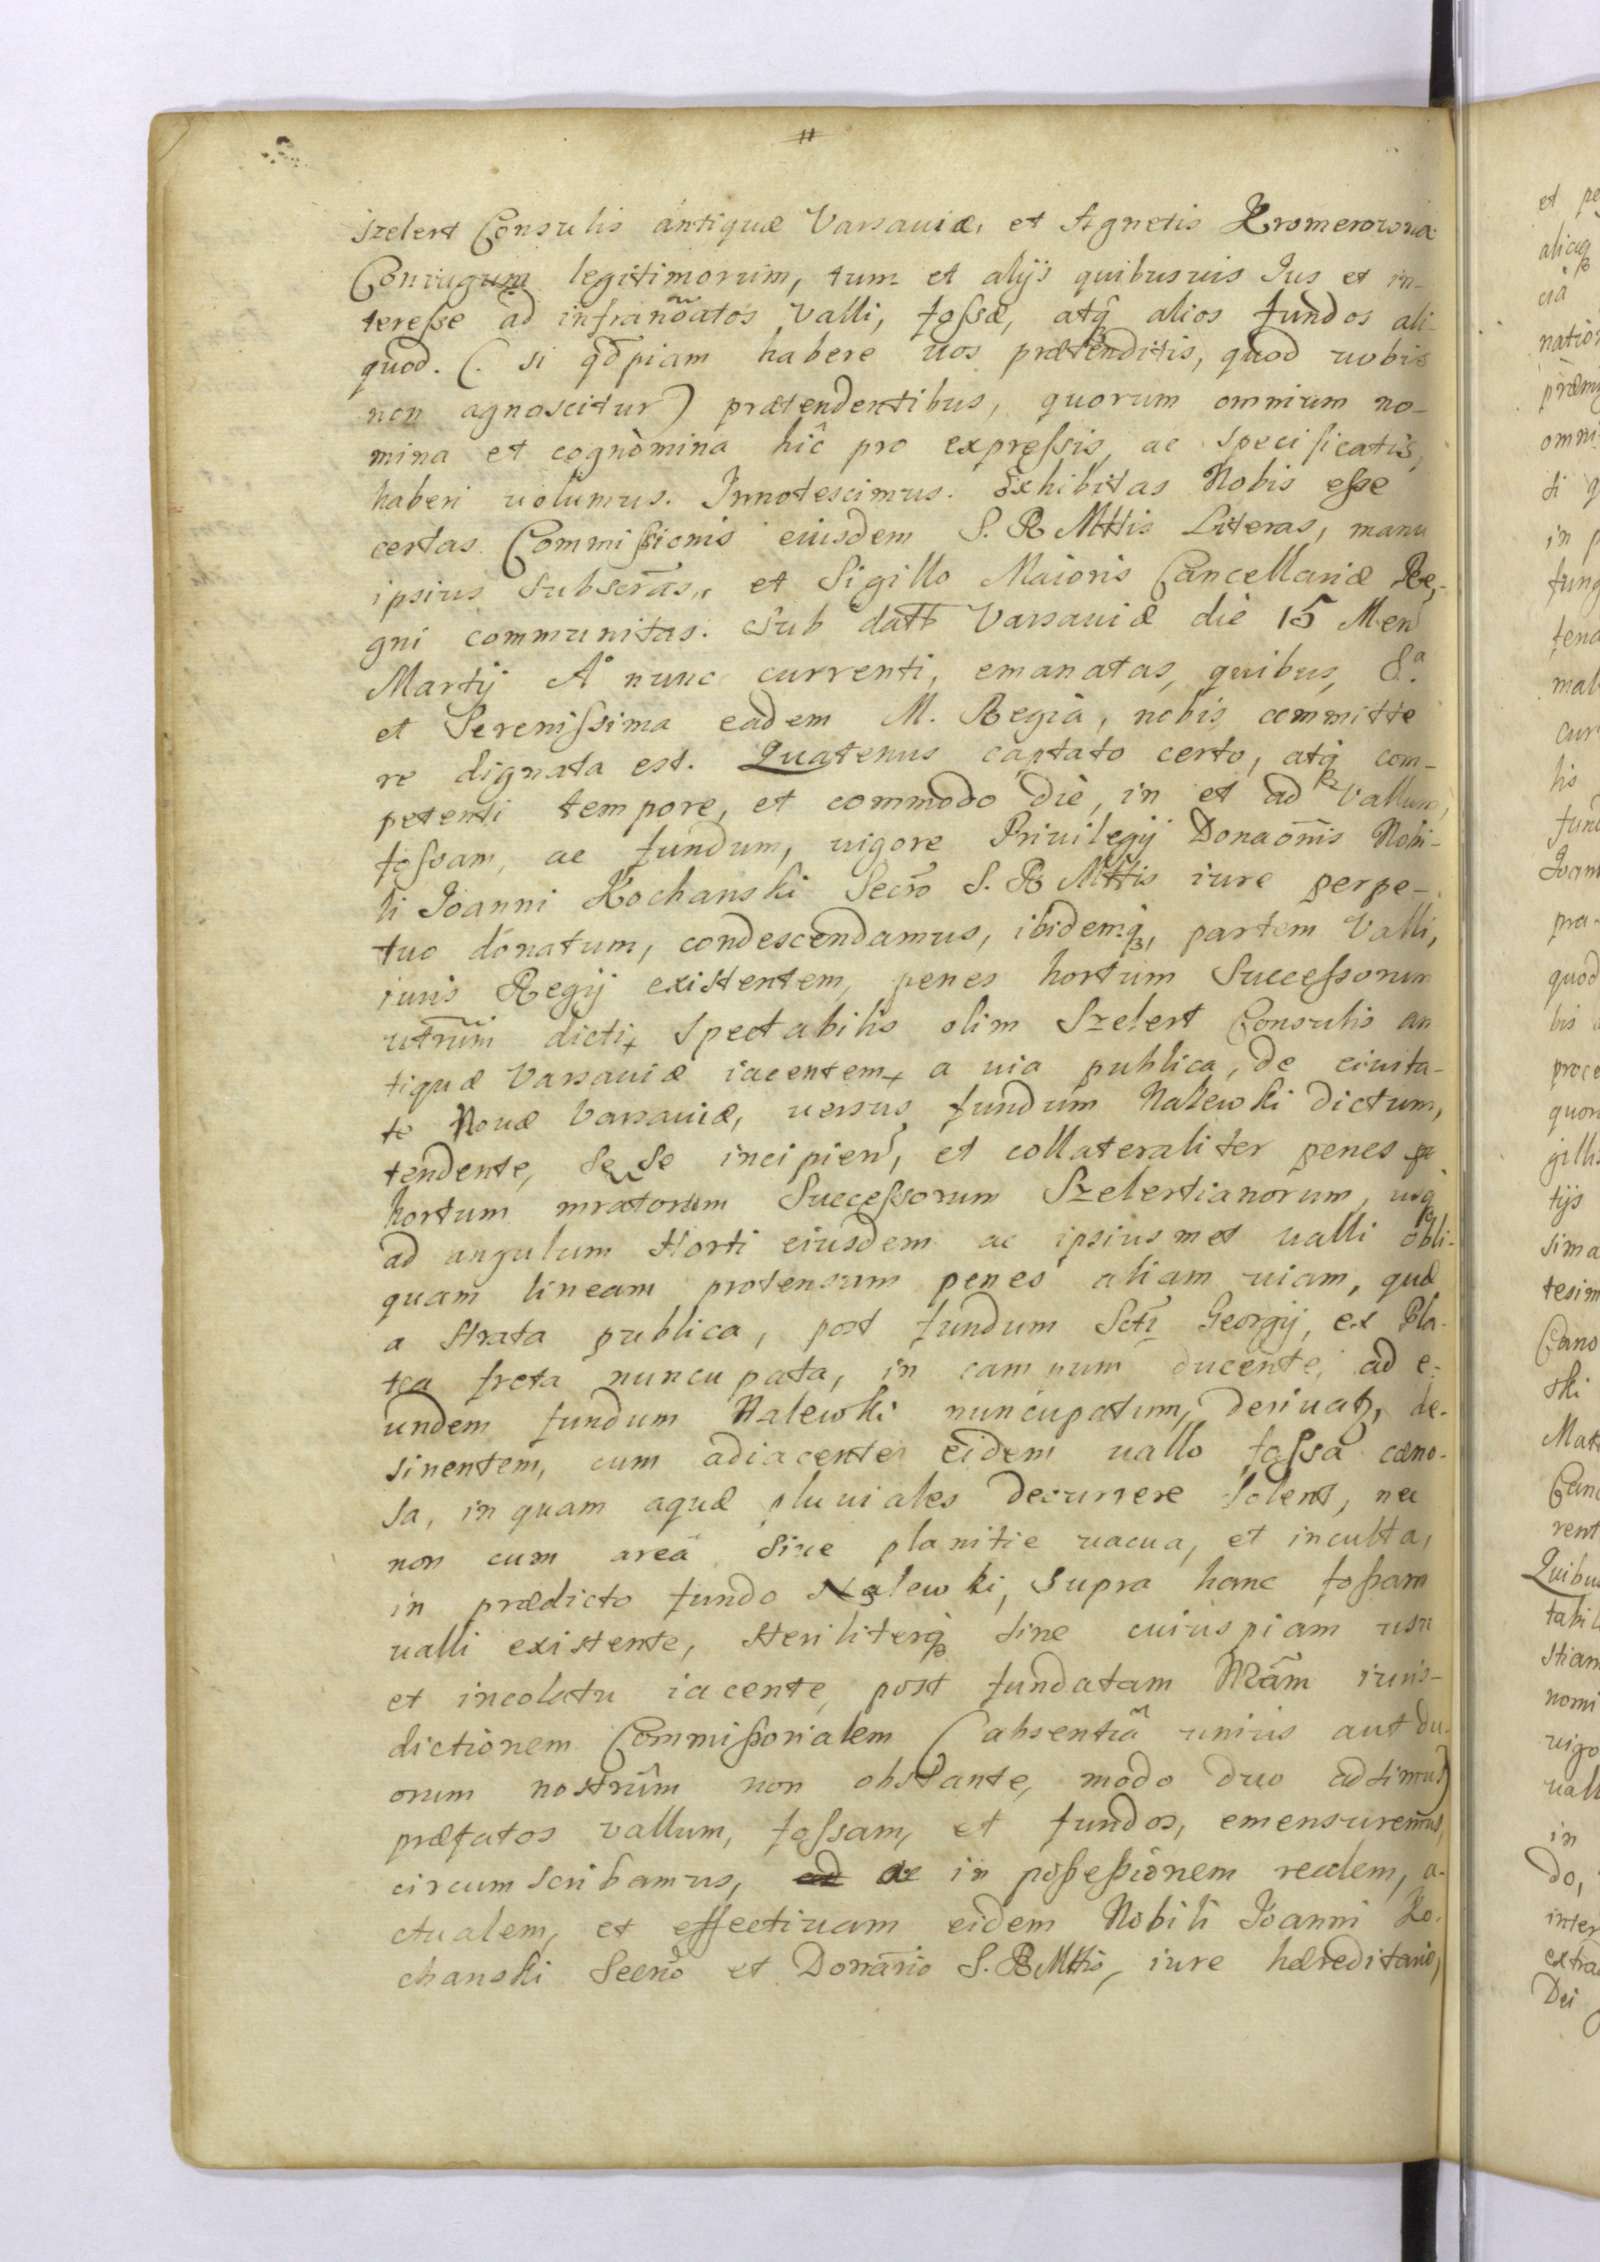 Szelert Consulis antiquæ Varsauiæ, et Agnetis Kromerowna
Coniugum legitimorum, tum et alijs quibusuis Ius et in-
teresse ad infranõatos Valli, fossæ, atq́ alios fundos ali-
quod. (. si qd̄piam habere uos prætenditis, quod uobis
non agnoscitur) prætendentibus, quorum omnium no-
mina et cognomina hic pro expressis, ac specificatis,
haberi uolumus. Innotescimus. Exhibitas Nobis esse
certas Commissionis eiusdem S. R Mttis Literas, manu
ipsius Subscr̄as, et Sigillo Maioris Cancellariæ Re-
gni communitas. Sub datt Varsauiæ die 15 Men
Martij A° nunc currenti, emanatas, quibus, S.ᵃ
et Serenissima eadem M. Regia, nobis committe
re dignata est. Quatenus captato certo, atq́ com-
petenti tempore, et commodo die, in et ad Vallum,
fossam, ac fundum, uigore Priuilegij Donaōnis Nobi-
li Ioanni Kochanski Secr̄o S. R Mttis iure perpe-
tuo donatum, condescendamus, ibidemq́, partem Valli,
iuris Regij existentem, penes hortum Successorum
utr̄umi dicti Spectabilis olim Szelert Consulis an
tiquæ Varsauiæ iacentem, a uia publica, de ciuita-
te Nouæ Varsauiæ, uersus fundum Nalewki dictum,
tendente, se se incipien, et collateraliter penes
hortum mratorum Successorum Szelertianorum, usq́
ad angulum Horti eiusdem ac ipsiusmet ualli obli-
quam lineam protensum penes aliam uiam, quæ
a Strata publica, post fundum Scti Georgij, ex Pla-
tea freta nuncupata, in campum ducente, ad e-
undem fundum Nalewki nuncupatum, deriuatr, de-
sinentem, cum adiacente eidem uallo fossa cæno-
sa, in quam aquæ pluuiales decurrere solent, nec
non cum area siue planitie uacua, et inculta,
in prædicto fundo Nalewki, supra hanc fossam
ualli existente, steriliterq́ sine cuiuspiam usu
et incolatu iacente, post fundatam Nr̄am iuris-
dictionem Commissorialem (absentia unius aut du-
orum nostrûm non obstante, modo duo adsimus)
præfatos vallum, fossam, et fundos, emensuremus,
circumscribamus, ac in possessionem realem, a-
ctualem, et effectiuam eidem Nobili Ioanni Ko-
chanski Secr̄o et Donr̄ario S. R Mttis, iure hæreditario,